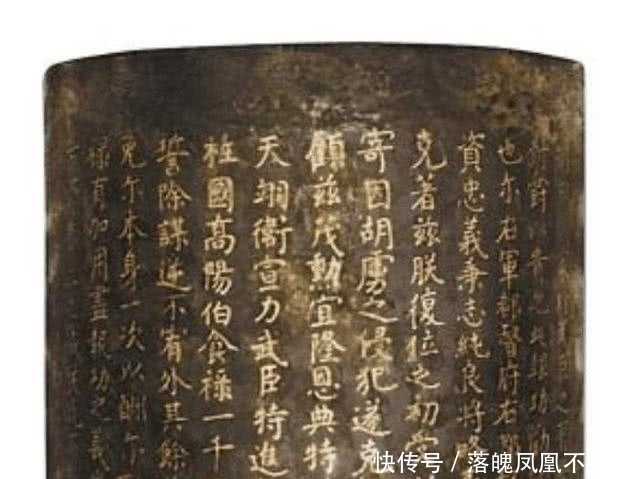 報功
也尔右軍都督府右都
資忠義秉志純良將略
克著兹朕復位之初
寄因胡虜之侵犯遂克
顧兹茂勲宜隆恩典特
天翊衛宣力武臣特進
柱國高陽伯食禄一千
誓除謀逆不宥外其餘
免尔本身一次以酬尔
禄有加用盡報功之義
快传号 / 落魄凤凰不